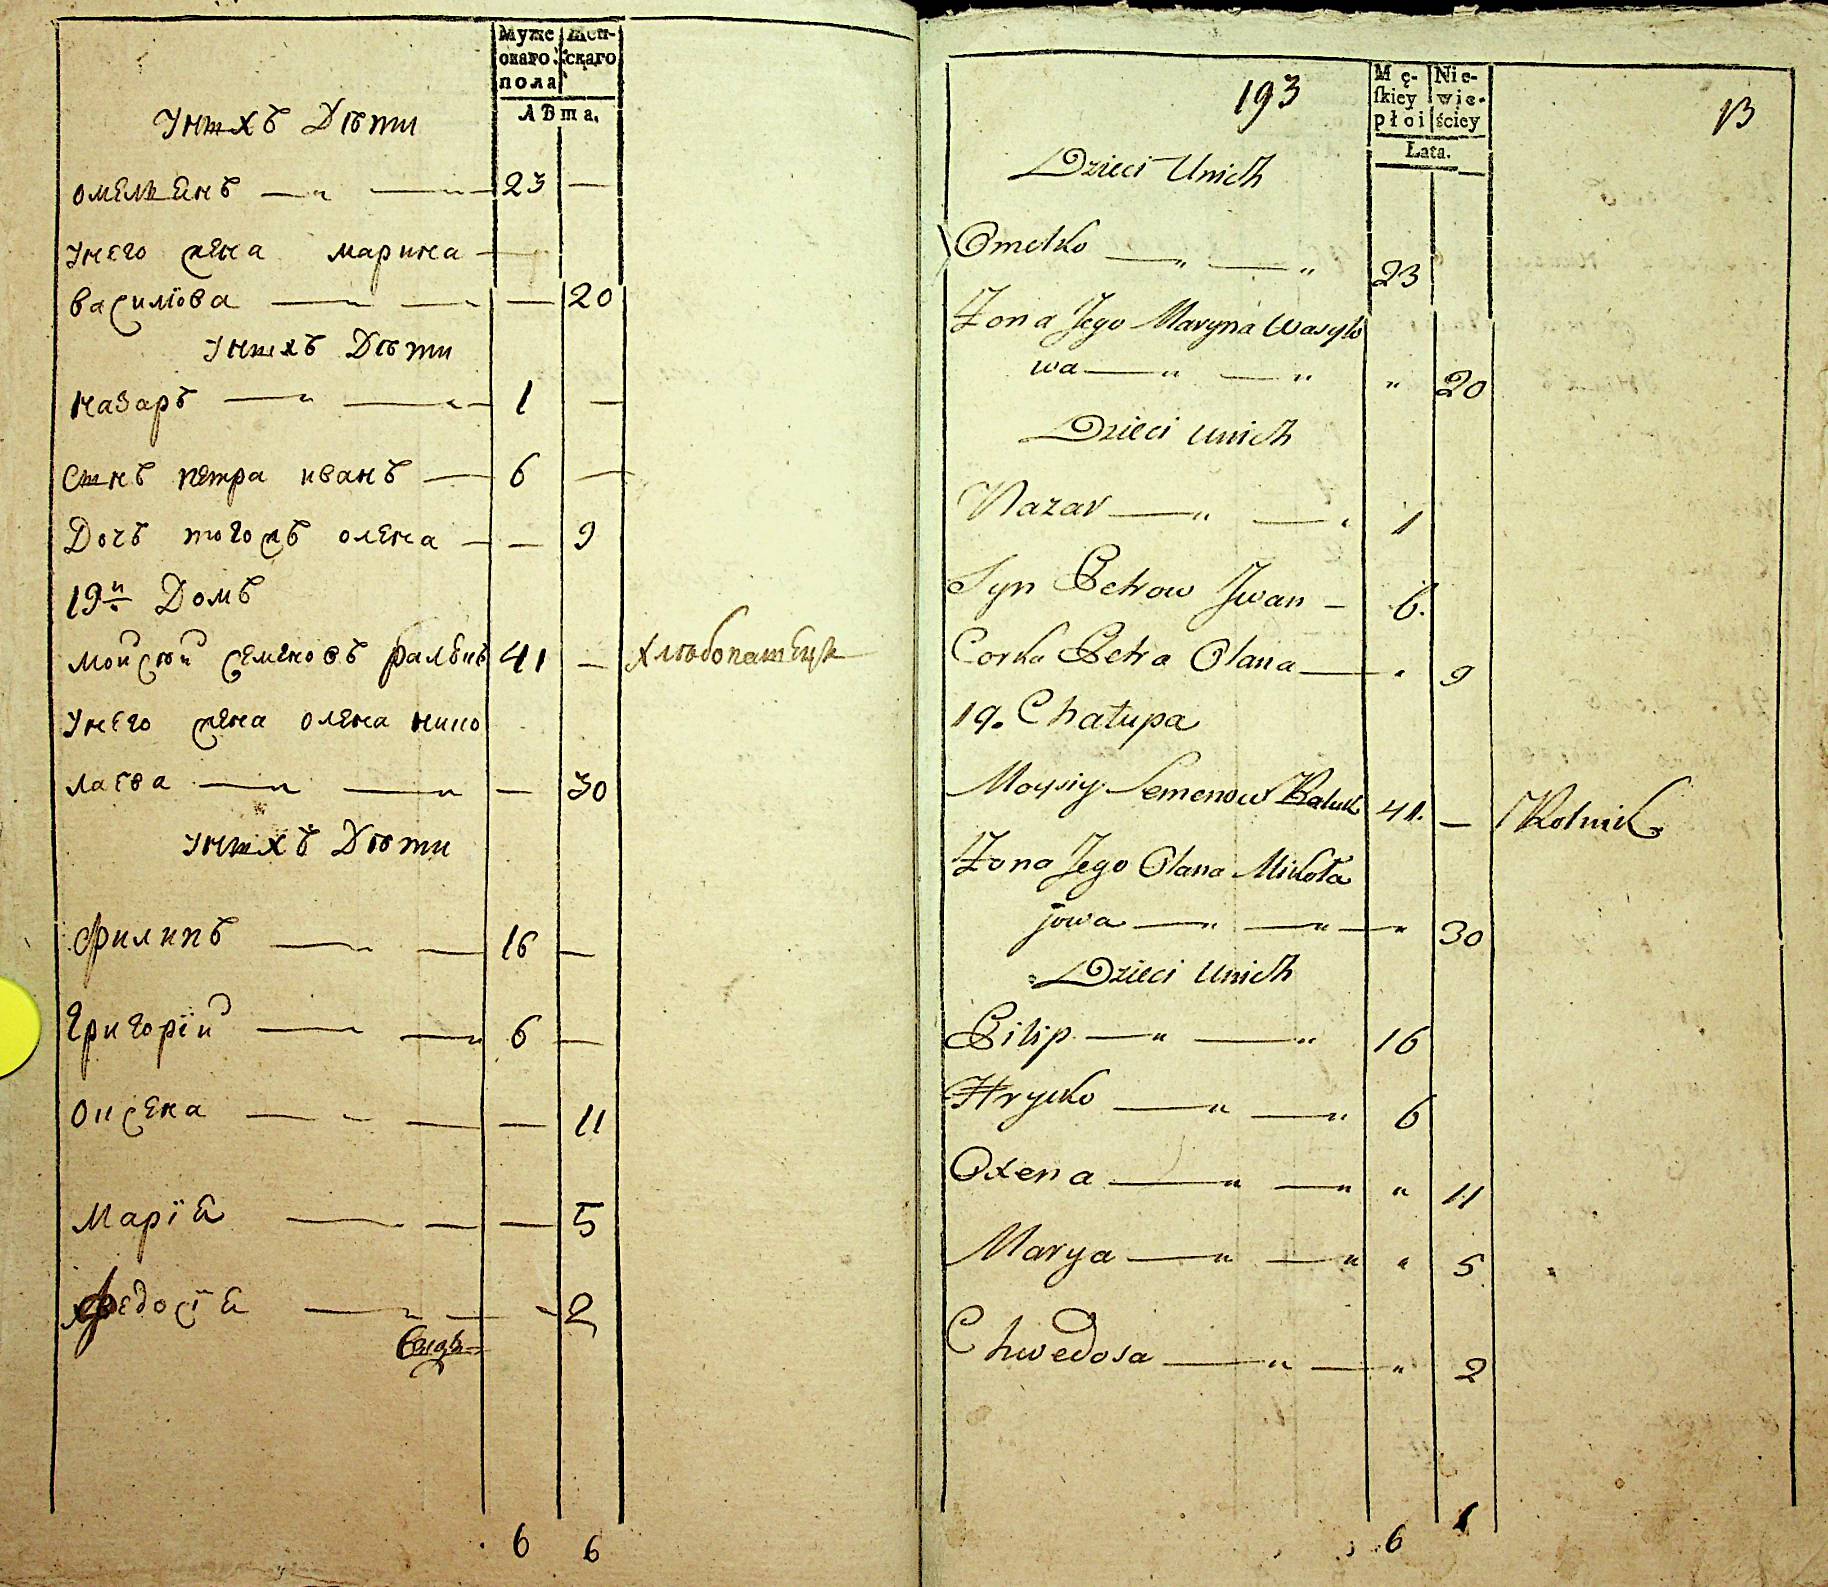 Муже
скаго
пола
Жен-
скаго
ЛѢта.
Унихъ Дѣти
омельянъ 23 —
Унего жена марина
василїова — 20
Унихъ Дѣти
назаръ 1 —
Синъ петра иванъ 6 —
Дочъ тогожъ олена — 9
19й Домъ
Мойсѣй семеновъ 41 — хлѣбопашецъ
Унего жена олена нико
лаева — 30
Унихъ Дѣти
филипъ 16 —
григорїй 6 —
оксена — 11
Марїя — 5
федосїя — 2
6 6
193
Mę-
skiey
płci
Nie-
wie-
ściey
Lata.
13
Dzieci Unich
Omelko 23
Żona Jego Maryna Wasylo
wa " 20
Dzieci Unich
Nazar 1
Syn Petrow Jwan 6.
Corka Petra Olana " 9
19. Chałupa
Moysiy Semenow 41. — Rolnik
Żona Jego Olana Mikoła
jowa " 30
Dzieci Unich
Pilip 16
Hrycko 6
Oxena " 11
Marya " 5
Chwedosa " 2
6